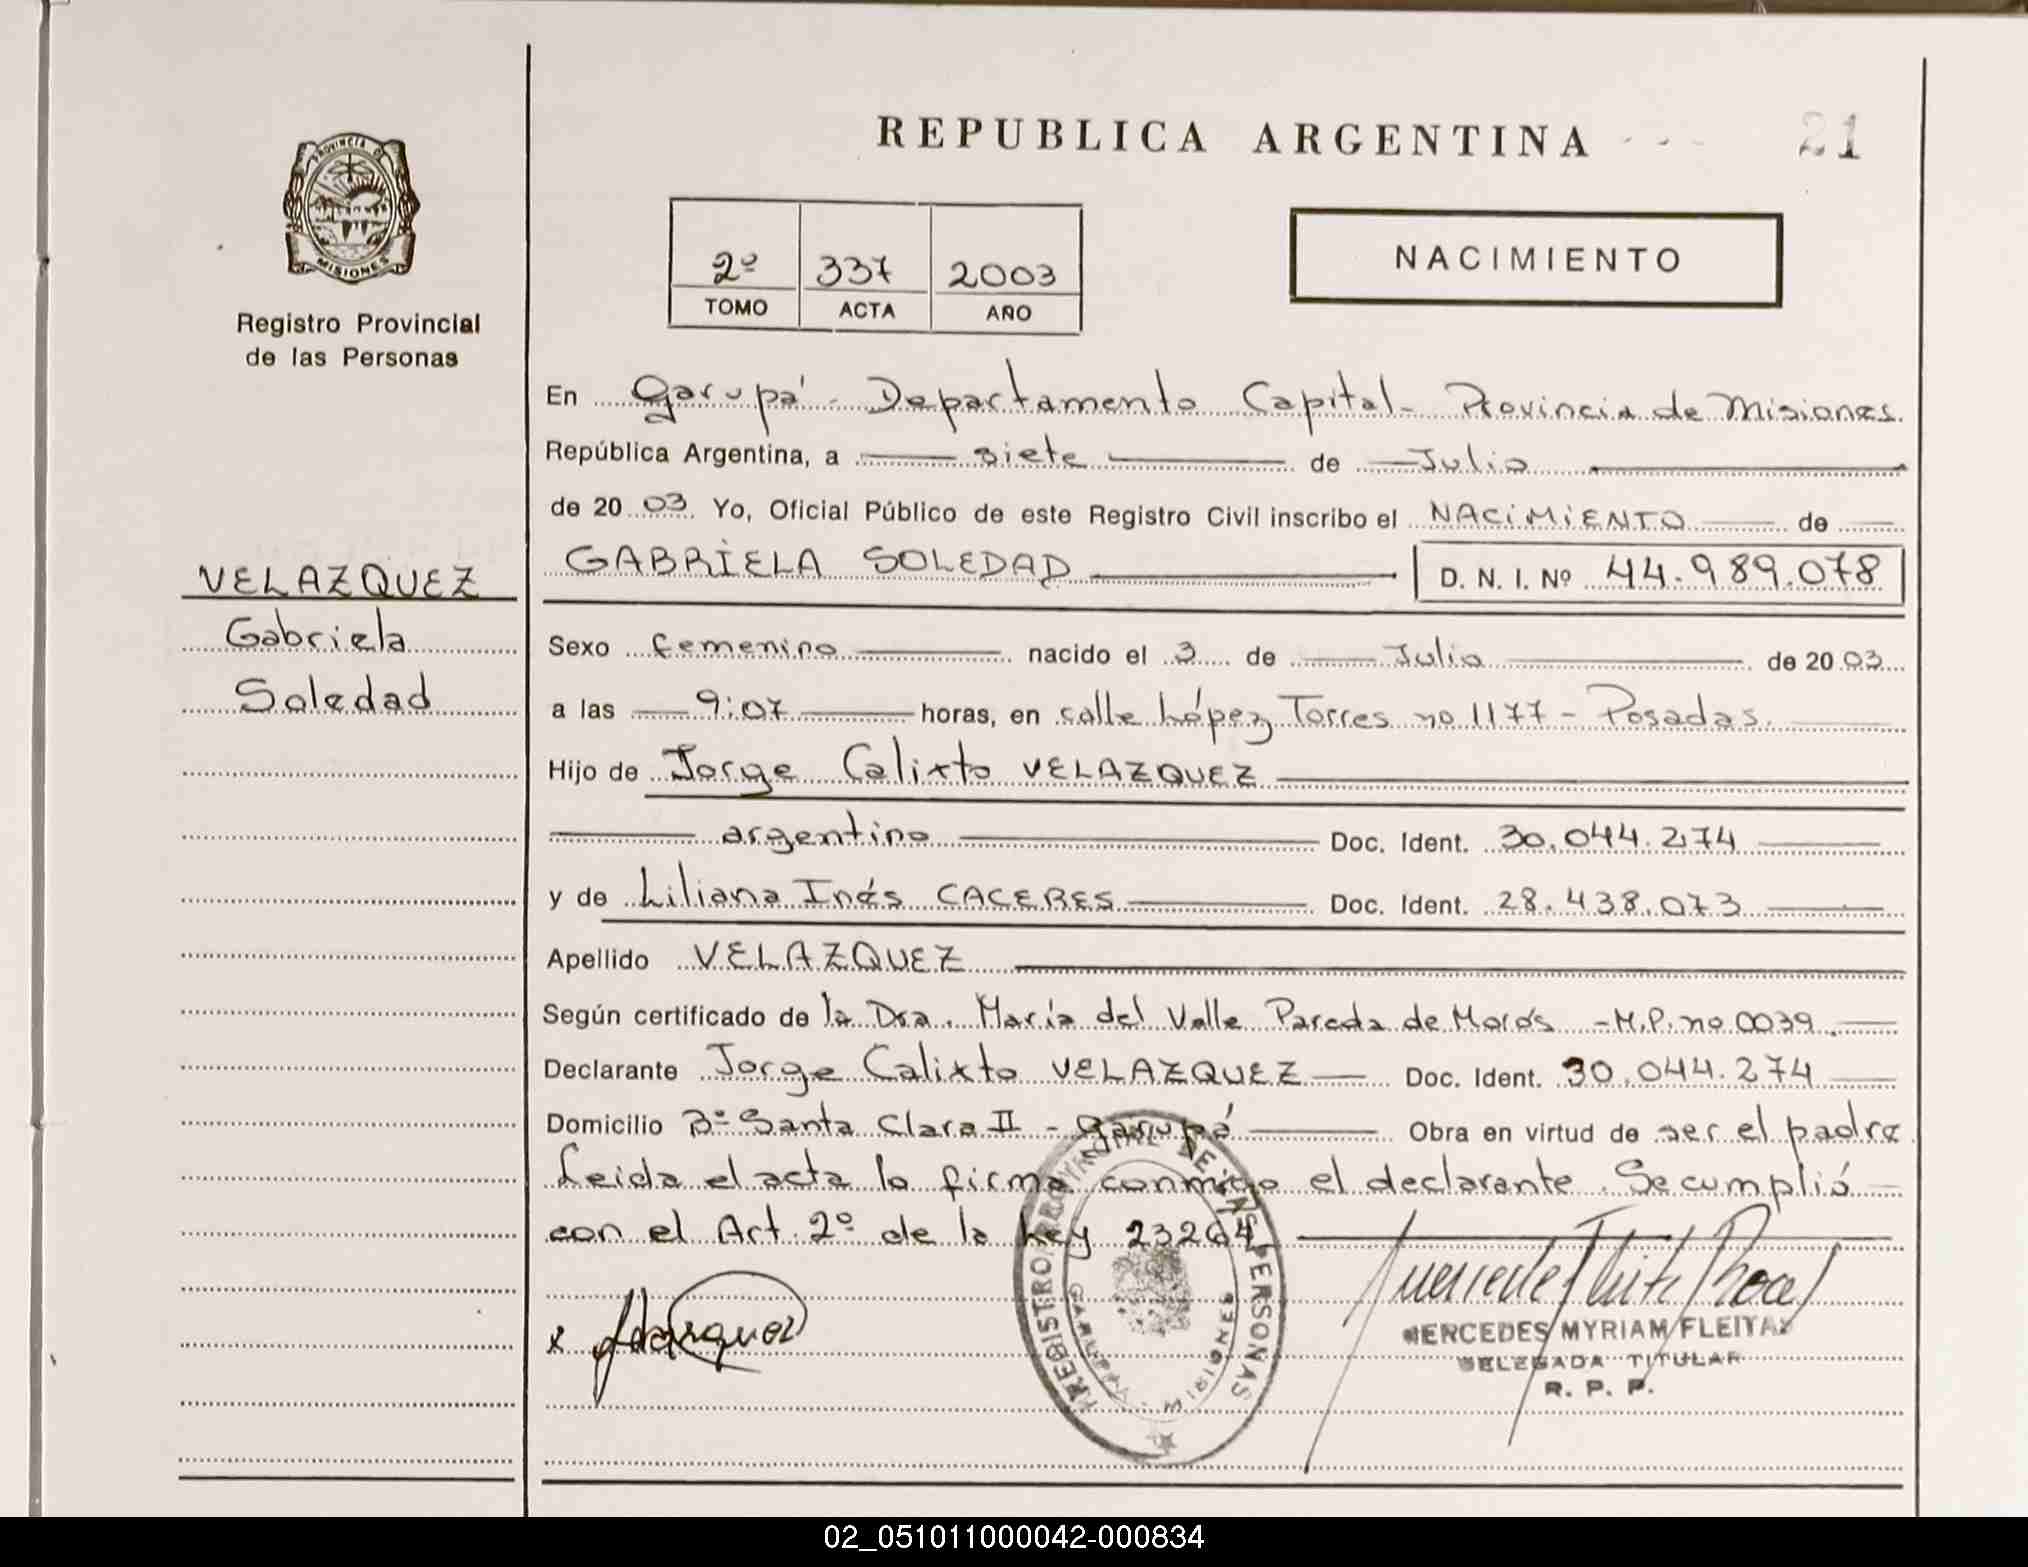 REPUBLICA ARGENTINA
21
PROVINCIA DE
MISIONES
Registro Provincial
de las Personas
2º 337 2003
TOMO ACTA AÑO
NACIMIENTO
En Garupá - Departamento Capital - Provincia de Misiones.
República Argentina, a siete de Julio
de 20 03. Yo, Oficial Público de este Registro Civil inscribo el NACIMIENTO de
GABRIELA SOLEDAD D. N. I. Nº 44.989.078
VELAZQUEZ
Gabriela
Soledad
Sexo femenino nacido el 3 de Julio de 20 03
a las 9:07 horas, en calle López Torres no 1177 - Posadas.
Hijo de Jorge Calixto VELAZQUEZ
argentino Doc. Ident. 30.044.274
y de Liliana Inés CACERES Doc. Ident. 28.438.073
Apellido VELAZQUEZ
Según certificado de la Dra. María del Valle Parada de Morós - M.P. no 0039.
Declarante Jorge Calixto VELAZQUEZ Doc. Ident. 30.044.274
Domicilio Bº Santa Clara II - Garupá Obra en virtud de ser el padre
Leida el acta la firma conmigo el declarante. Se cumplió
con el Art. 2º de la Ley 23264
x
REGISTRO PROVINCIAL DE LAS PERSONAS
GARUPA
MERCEDES MYRIAM FLEITAS
DELEGADA TITULAR
R. P. P.
02_051011000042-000834